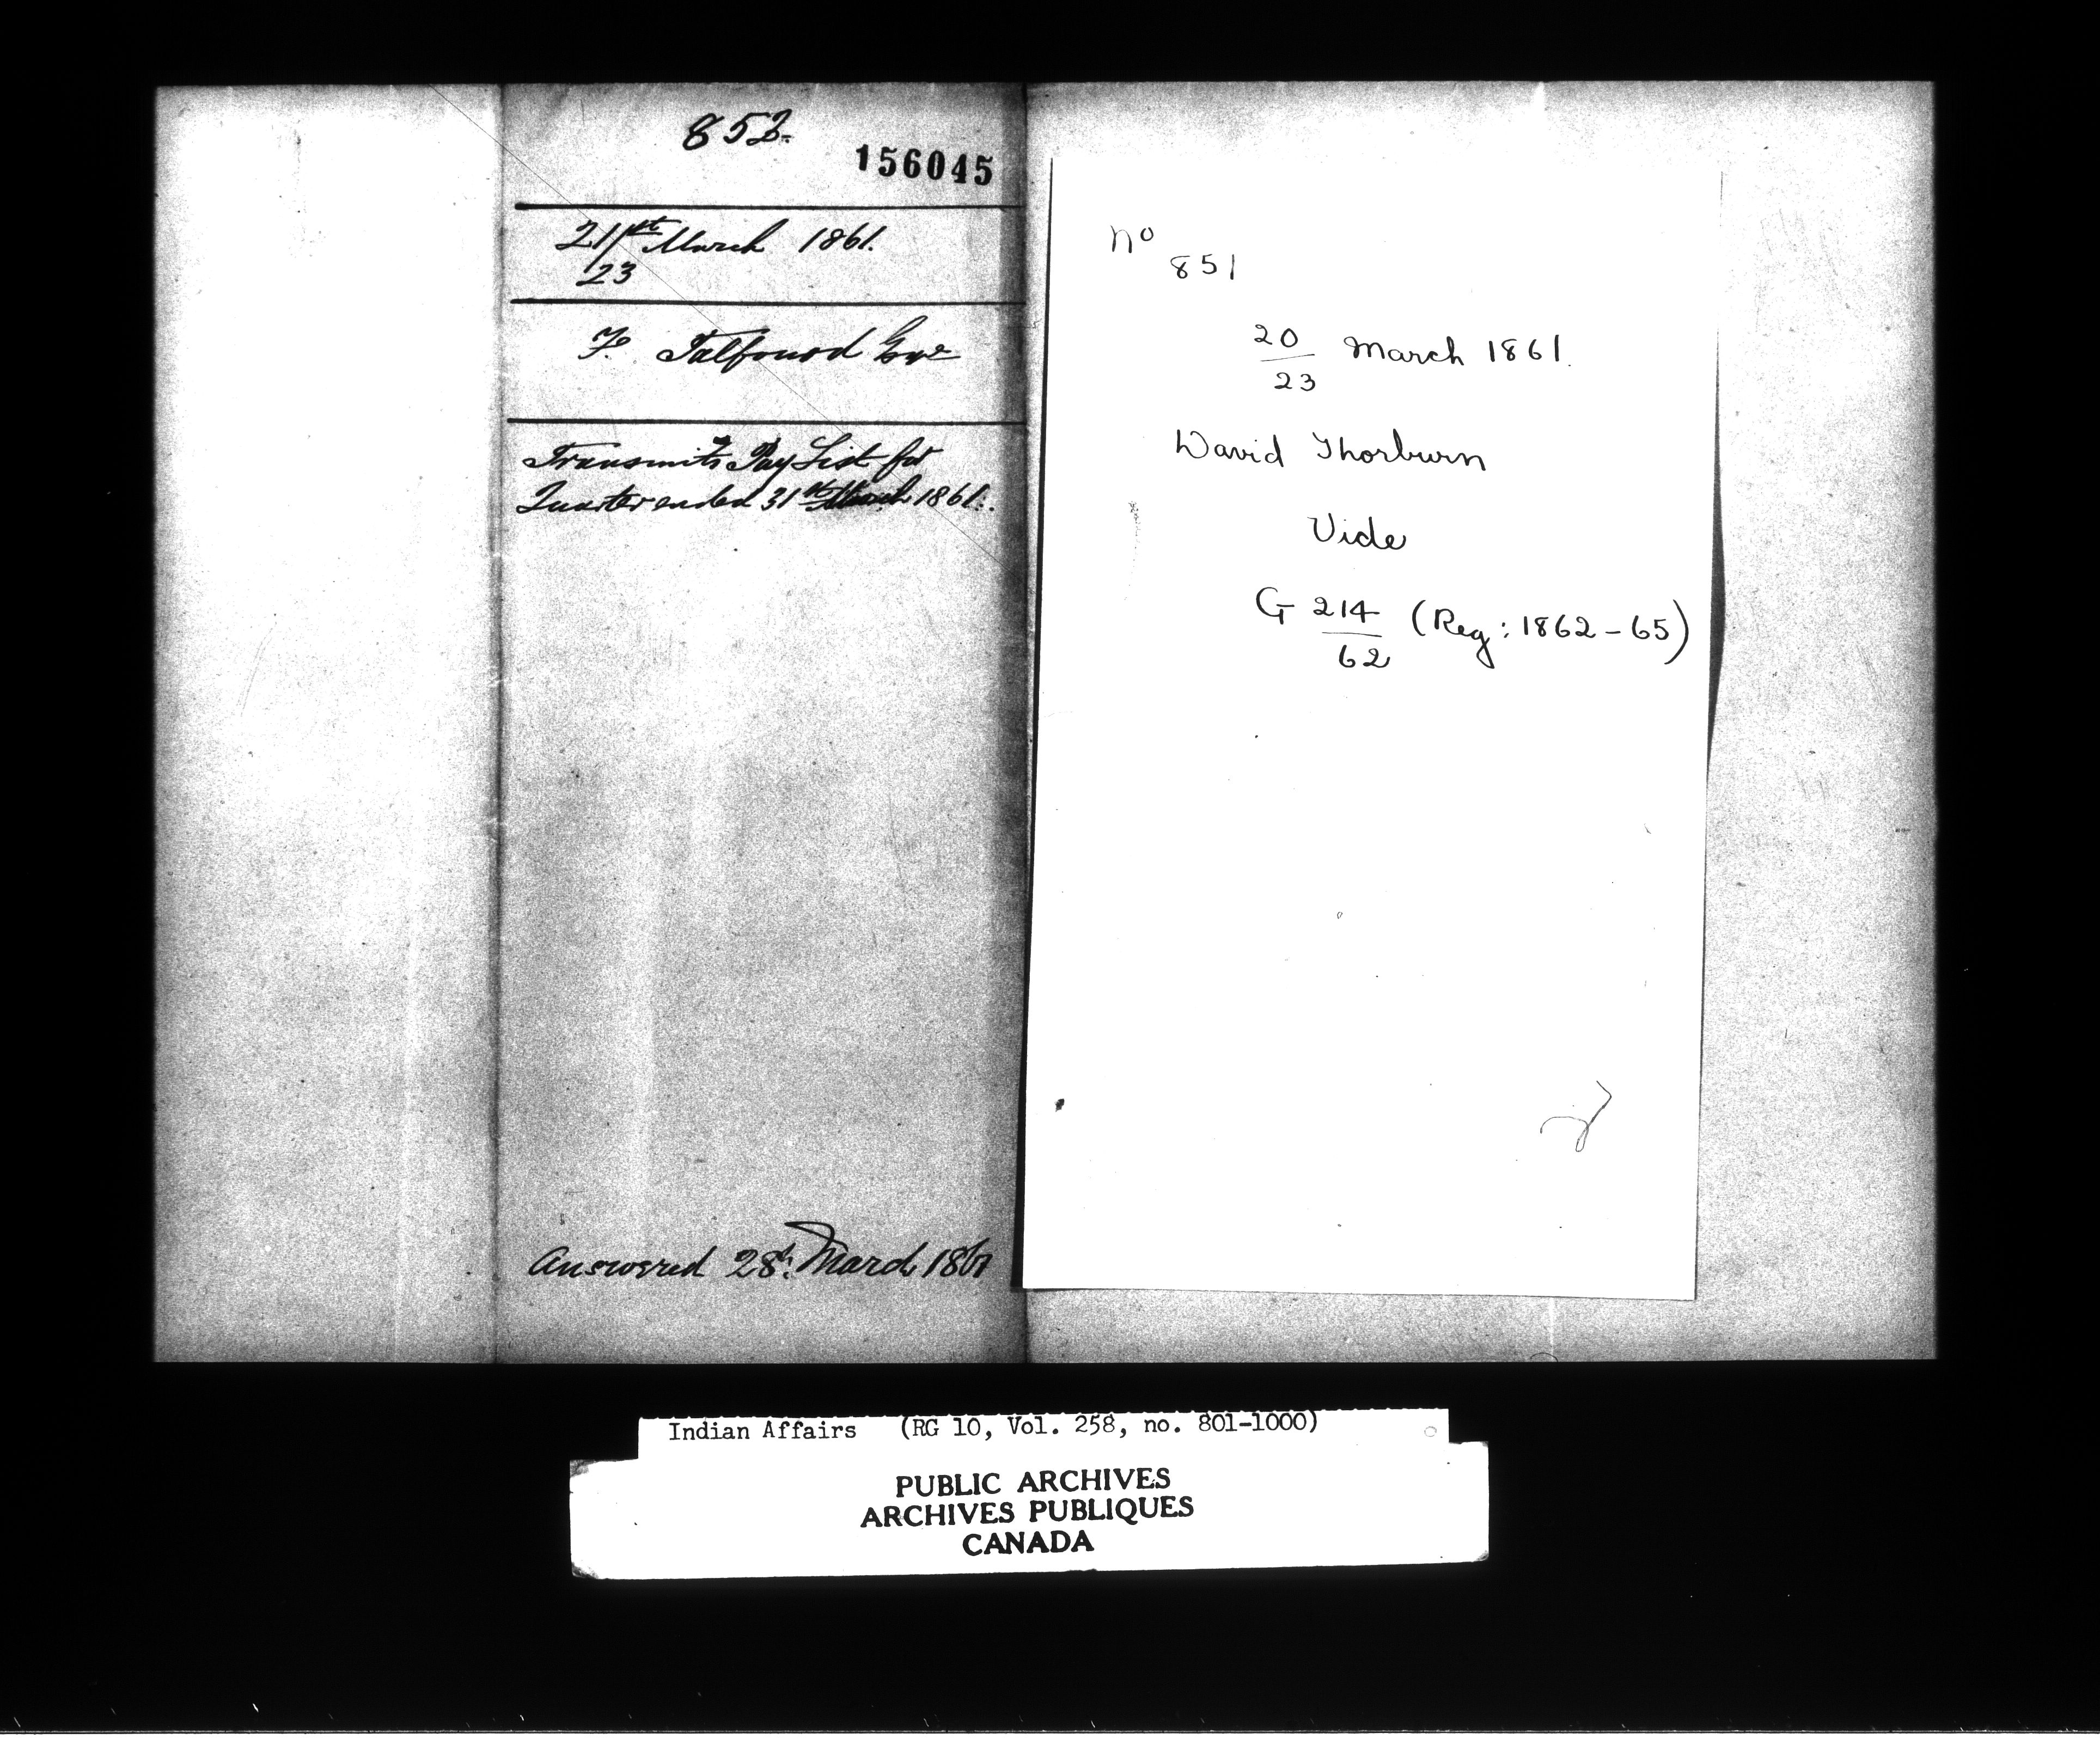 852.
156045
21st March 1861.
23
F. Talfourd Esqr
Transmits Pay List for
Quarter ended 31st March 1861.
Answered 28th. March 1861
no
851
20
23
March 1861.
David Thorburn
Vide
G 214
62
(Reg: 1862-65)
Indian Affairs (RG 10, Vol. 258, no. 801-1000)
PUBLIC ARCHIVES
ARCHIVES PUBLIQUES
CANADA